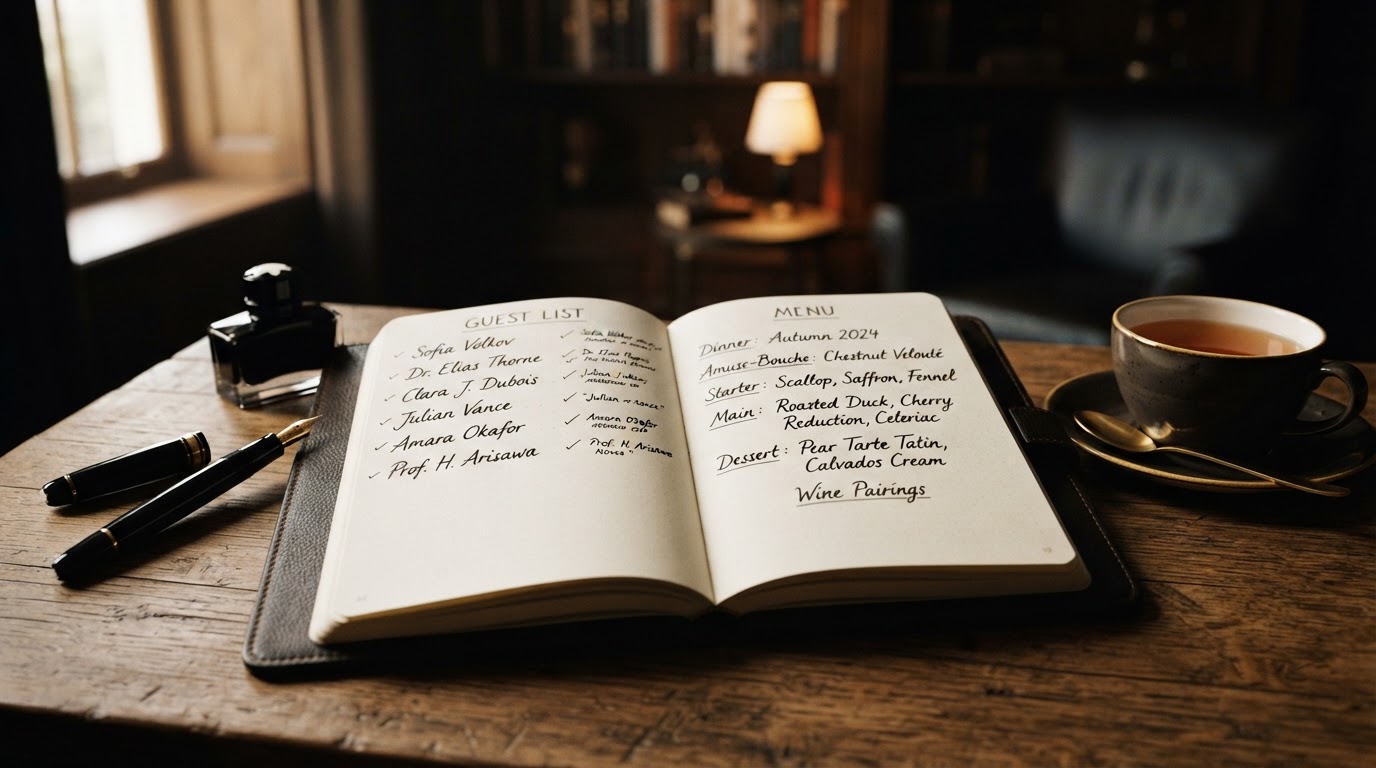 GUEST LIST
✓ Sofia Volkov
✓ Dr. Elias Thorne
✓ Clara J. Dubois
✓ Julian Vance
✓ Amara Okafor
✓ Prof. H. Arisawa
✓ Sofia
✓ Dr.
✓ Julian
✓ "Julian
✓ Amara Okafor
✓ Prof. H. Arisawa
MENU
Dinner: Autumn 2024
Amuse-Bouche: Chestnut Velouté
Starter: Scallop, Saffron, Fennel
Main: Roasted Duck, Cherry
Reduction, Celeriac
Dessert: Pear Tarte Tatin,
Calvados Cream
Wine Pairings